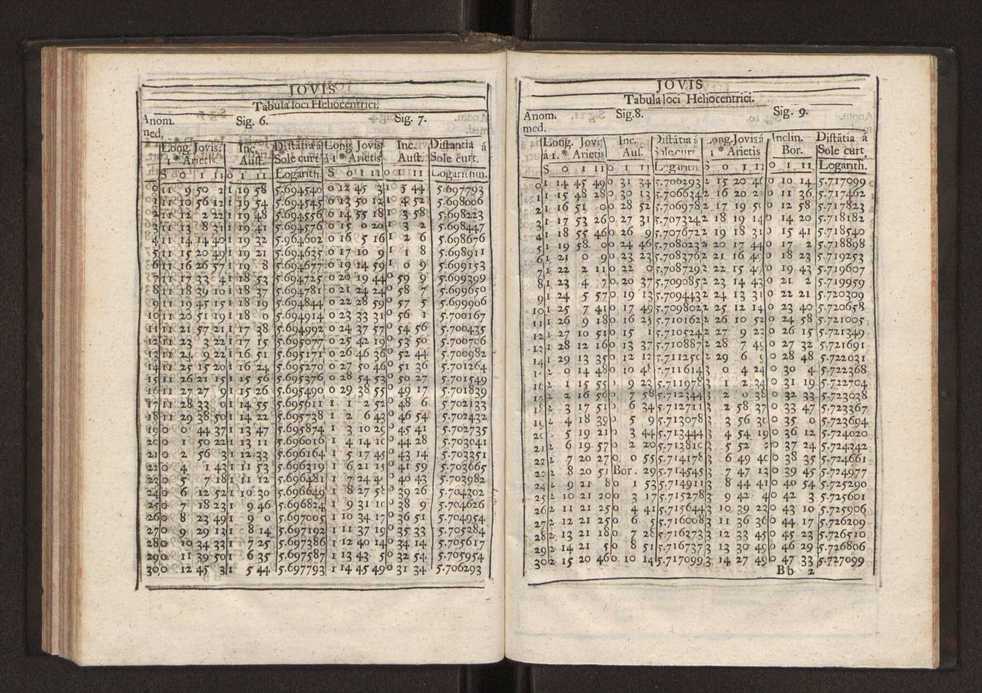 JOVIS
Tabula loci Heliocentrici.
Anom. Sig. 6. Sig. 7.
med.
Long. Jovis Inc. Distãtia á Long. Jovis Inc. Distantia á
á 1 * Arietis Aust. Sole curt á 1 * Arietis Aust. Sole curt.
S 0 1 11 0 1 11 Logarith. S 0 1 11 0 1 11 Logarithm.
0 11 9 50 2 1 19 58 5.694540 0 12 45 3 1 5 44 5.697793
11 10 56 12 1 19 54 5.694545 0 13 50 12 1 4 52 5.698006
11 12 2 22 1 19 48 5.694556 0 14 55 18 1 3 58 5.698223
11 13 8 31 1 19 41 5.694576 0 15 0 20 1 3 2 5.698447
4 11 14 14 40 1 19 32 5.964602 0 16 5 16 1 2 6 5.698676
11 15 20 49 1 19 21 5.694635 0 17 10 9 1 1 8 5.698911
6 11 16 26 57 1 19 8 5.694677 0 19 14 59 1 0 9 5.699153
11 17 33 4 1 18 53 5.694725 0 20 19 44 0 59 9 5.699399
8 11 18 39 10 1 18 37 5.694781 0 21 24 24 0 58 7 5.699650
9 11 19 45 15 1 18 19 5.694844 0 22 28 59 0 57 5 5.699906
10 11 20 51 19 1 18 0 5.694914 0 23 33 31 0 56 1 5.700167
11 11 21 57 21 1 17 38 5.694992 0 24 37 57 0 54 56 5.700435
12 11 23 3 22 1 17 15 5.695077 0 25 42 19 0 53 50 5.700706
13 11 24 9 22 1 16 51 5.695171 0 26 46 36 0 52 44 5.700982
14 11 25 15 20 1 16 24 5.695270 0 27 50 46 0 51 36 5.701264
15 11 26 21 15 1 15 56 5.695376 0 28 54 53 0 50 27 5.701549
16 11 27 27 9 1 15 26 5.695490 0 29 38 55 0 49 17 5.701839
17 11 28 33 0 1 14 55 5.695611 1 1 2 52 0 48 6 5.702133
18 11 29 38 50 1 14 22 5.695738 1 2 6 43 0 46 54 5.702432
19 0 0 44 37 1 13 47 5.695874 1 3 10 29 0 45 41 5.702735
20 0 1 50 22 1 13 11 5.696016 1 4 14 10 0 44 28 5.703041
21 0 2 56 3 1 12 33 5.696164 1 5 17 45 0 43 14 5.703351
22 0 4 1 43 1 11 53 5.696319 1 6 21 15 0 41 59 5.703665
23 0 5 7 18 1 11 12 5.696481 1 7 24 4 0 40 43 5.703982
24 0 6 12 52 1 10 30 5.696649 1 8 27 58 0 39 26 5.704302
25 0 7 18 23 1 9 46 5.696824 1 9 31 10 0 38 9 5.704626
26 0 8 23 49 1 9 0 5.697005 1 10 34 17 0 36 51 5.704954
27 0 9 29 13 1 8 14 5.697192 1 11 37 19 0 35 33 5.705284
28 0 10 34 33 1 7 25 5.697386 1 12 40 14 0 34 14 5.705617
29 0 11 39 50 1 6 35 5.697587 1 13 43 5 0 32 54 5.705954
30 0 12 45 3 1 5 44 5.697793 1 14 45 49 0 31 34 5.706293
JOVIS
Tabula loci Heliocentrici.
Anom. Sig. 8. Sig. 9.
med.
Long. Jovis Inc. Distãtia á Long. Jovis á Inclin. Distãtia á
á 1. * Arietis Aust. Sole curt 1 * Arietis Bor. Sole curt
S 0 1 11 0 1 11 Logarith S 0 1 11 0 1 11 Logarith.
0 1 14 45 49 0 31 34 5.706293 2 15 20 46 0 10 14 5.717099
1 1 15 48 28 0 30 13 5.706634 2 16 20 2 0 11 36 5.717462
2 1 16 51 0 0 28 52 5.706978 2 17 19 5 0 12 58 5.717823
3 1 17 53 26 0 27 31 5.707324 2 18 19 14 0 14 20 5.718182
4 1 18 55 46 0 26 9 5.707672 2 19 18 31 0 15 41 5.718540
5 1 19 58 0 0 24 46 5.708023 2 20 17 44 0 17 2 5.718898
6 1 21 0 9 0 23 23 5.708376 2 21 16 49 0 18 23 5.719253
7 1 22 2 11 0 22 0 5.708729 2 22 15 47 0 19 43 5.719607
8 1 23 4 7 0 20 37 5.709085 2 23 14 43 0 21 2 5.719959
9 1 24 5 57 0 19 13 5.709443 2 24 13 31 0 22 21 5.720309
10 1 25 7 41 0 17 49 5.709802 2 25 12 14 0 23 40 5.720658
11 1 26 9 18 0 16 25 5.710162 2 26 10 52 0 24 58 5.721005
12 1 27 10 51 0 15 1 5.710524 2 27 9 22 0 26 15 5.721349
13 1 28 12 16 0 13 37 5.710887 2 28 7 49 0 27 32 5.721691
14 1 29 13 35 0 12 12 5.711250 2 29 6 9 0 28 48 5.722031
2 0 14 48 0 10 48 5.711614 3 0 4 24 0 30 4 5.722368
2 1 15 55 0 9 23 5.711978 3 1 2 34 0 31 19 5.722704
2 2 16 56 0 7 58 5.712344 3 2 0 38 0 32 33 5.723038
2 3 17 51 0 6 34 5.712711 3 2 58 37 0 33 47 5.723367
2 4 18 39 0 5 9 5.713078 3 3 56 30 0 35 0 5.723694
2 5 19 21 0 3 44 5.713444 3 4 54 19 0 36 12 5.724020
2 6 19 57 0 2 20 5.713810 3 5 52 2 0 37 24 5.724342
2 7 20 27 0 0 55 5.714176 3 6 49 40 0 38 35 5.724661
2 8 20 51 Bor. 29 5.714545 3 7 47 13 0 39 45 5.724977
2 9 21 8 0 1 53 5.714911 3 8 44 41 0 40 54 5.725290
25 2 10 21 20 0 3 17 5.715278 3 9 42 4 0 42 3 5.725601
26 2 11 21 25 0 4 41 5.715644 3 10 39 23 0 43 10 5.725906
27 2 12 21 25 0 6 5 5.716008 3 11 36 36 0 44 17 5.726209
28 2 13 21 18 0 7 28 5.716373 3 12 33 45 0 45 23 5.726510
29 2 14 21 5 0 8 51 5.716737 3 13 30 49 0 46 29 5.726806
30 2 15 20 46 0 10 14 5.717099 3 14 27 49 0 47 33 5.727099
Bb 2